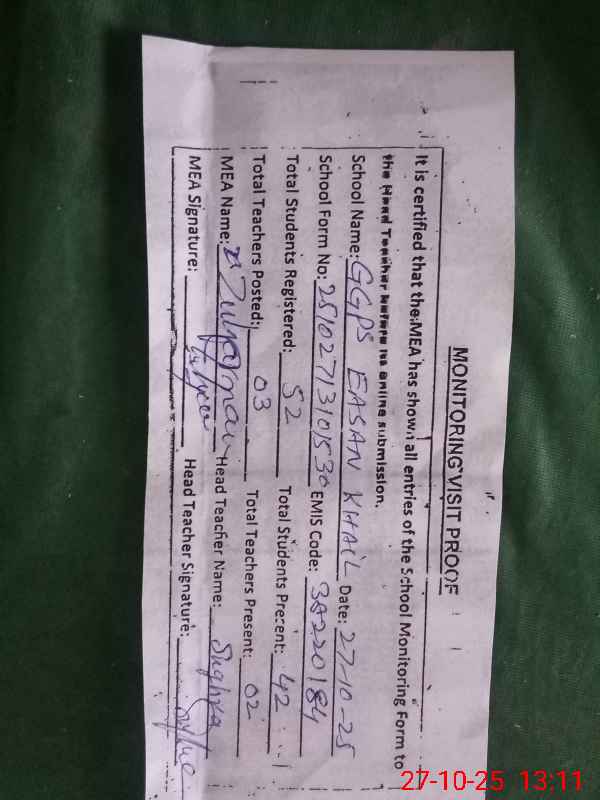 MONITORING VISIT PROOF
It is certified that the MEA has shown all entries of the School Monitoring Form to
the Head Teacher before its online submission.
School Name: GGPS EASAN KHAIL Date: 27-10-25
School Form No: 25102713101530 EMIS Code: 38220184
Total Students Registered: 52 Total Students Precent: 42
Total Teachers Posted: 03 Total Teachers Present: 02
MEA Name: Head Teacher Name: Sughra
MEA Signature: Head Teacher Signature:
27-10-25 13:11